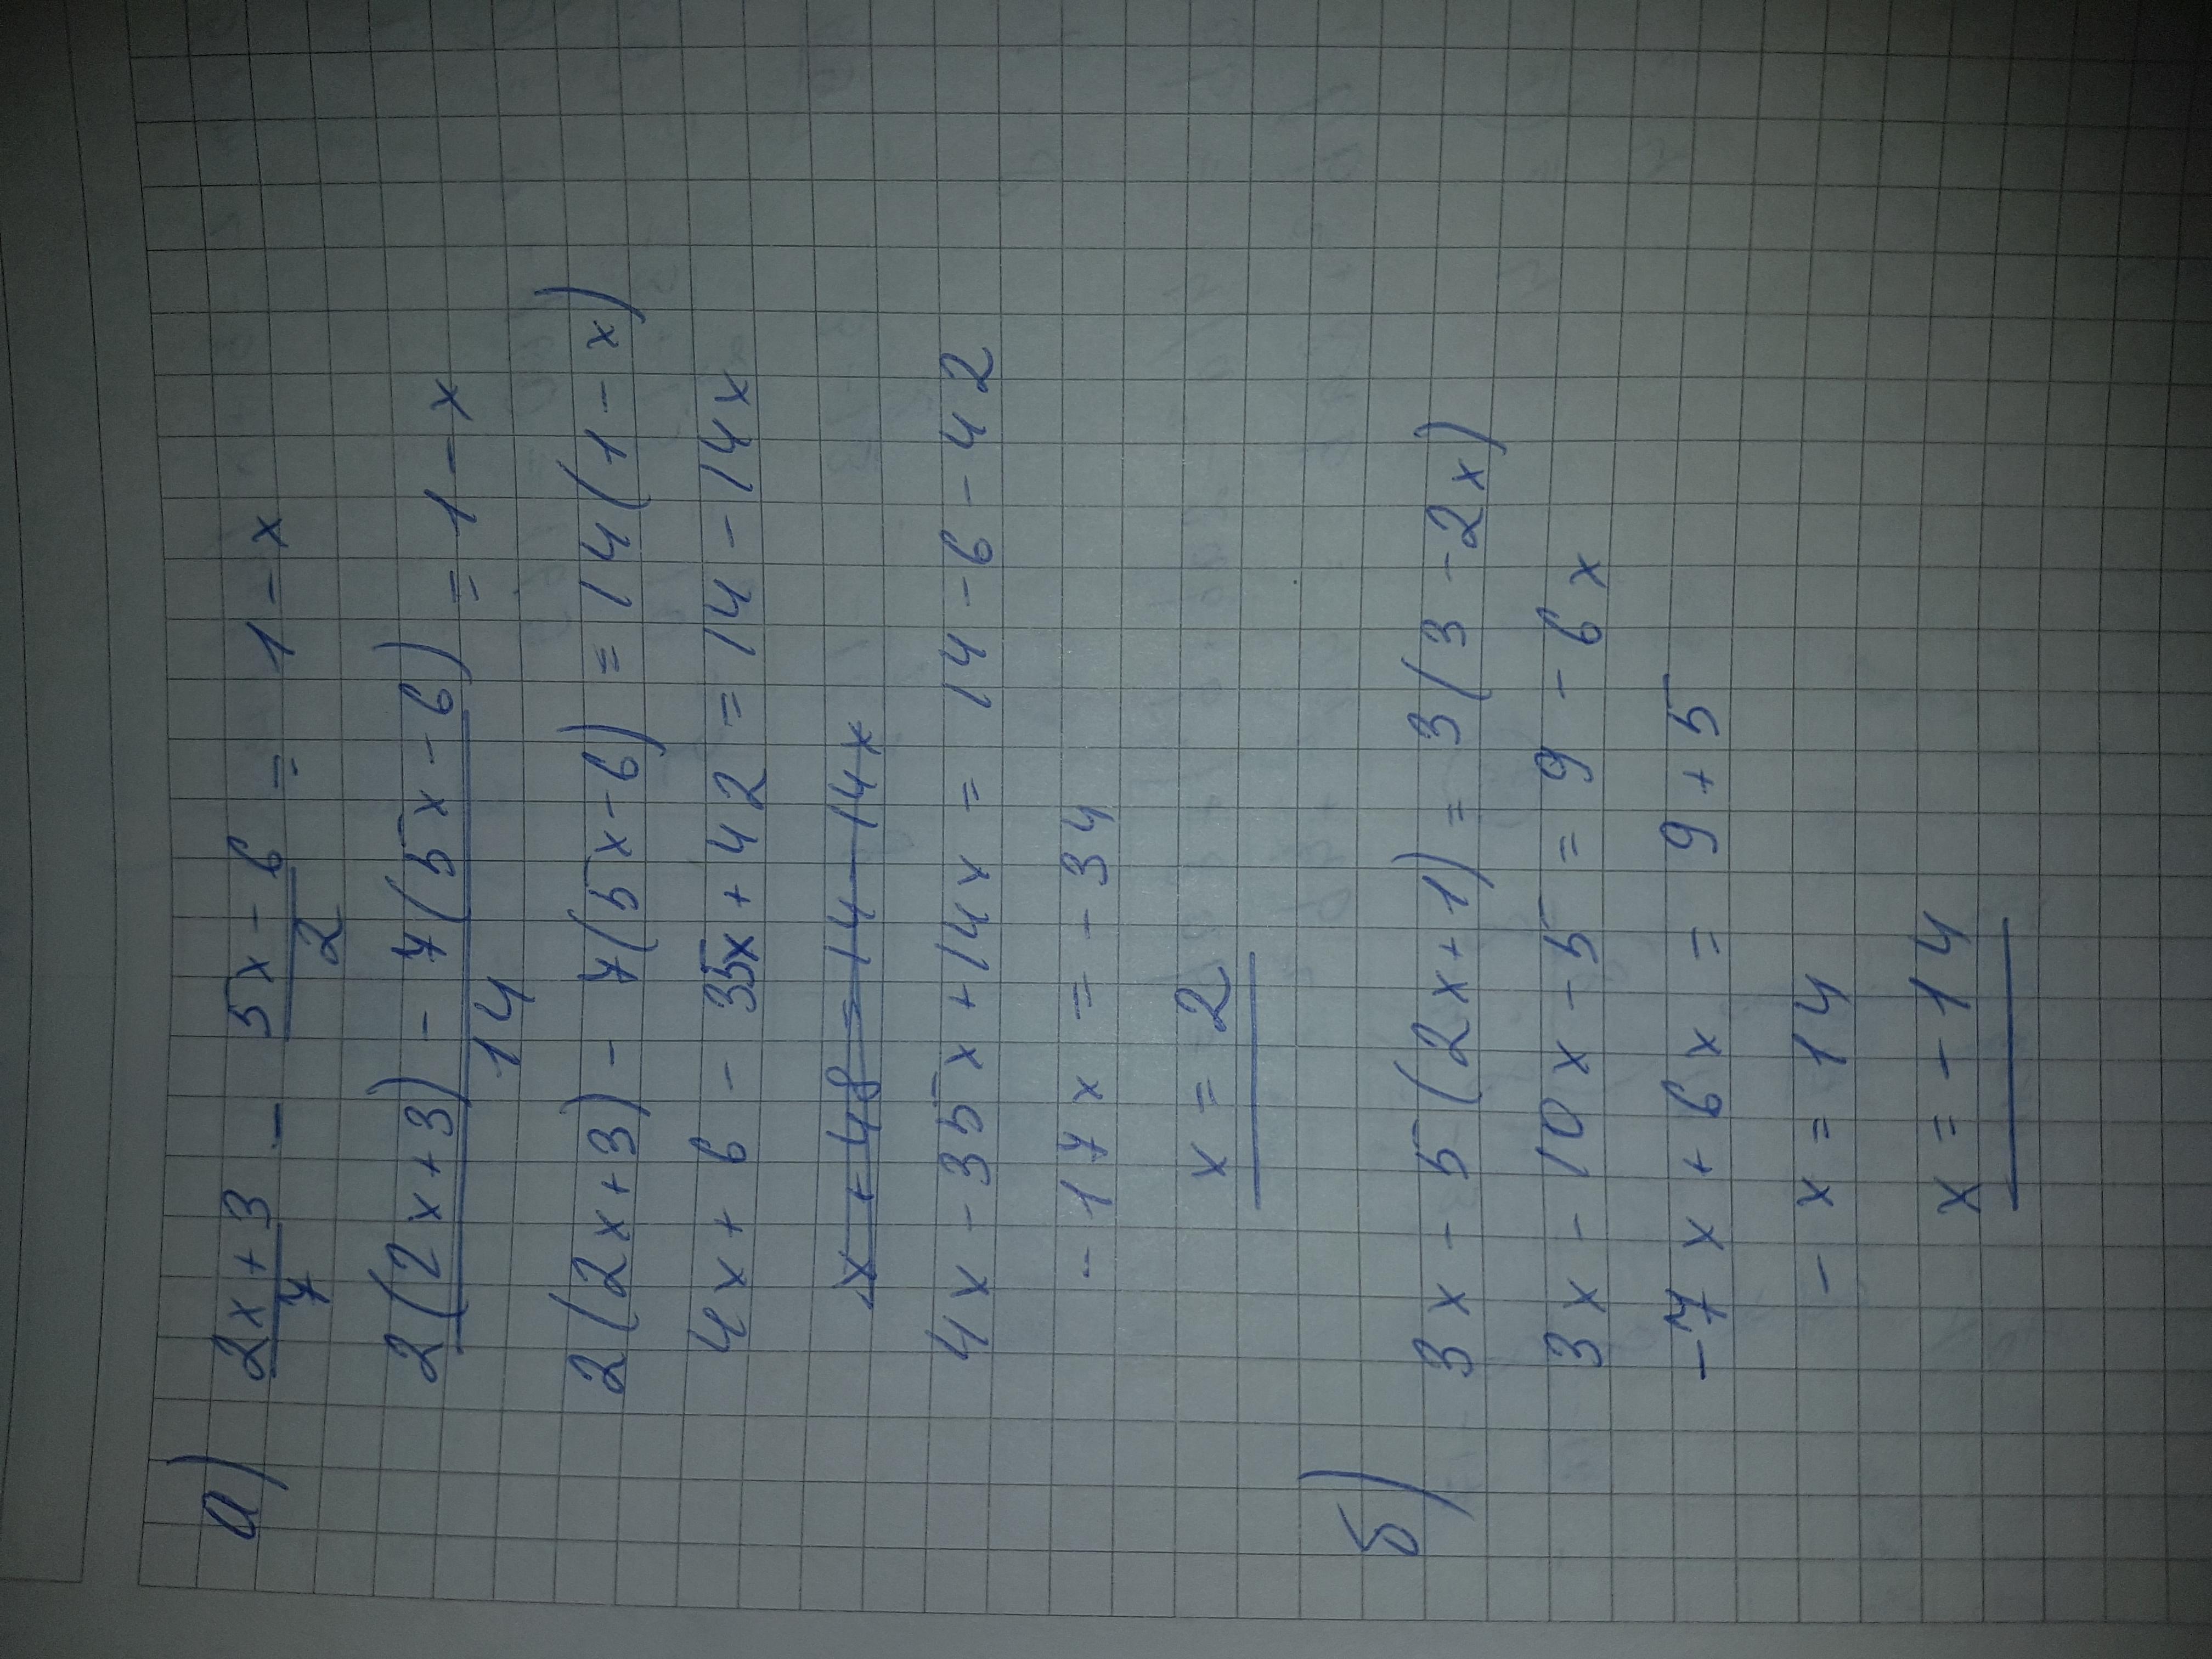 а) 2x+3/7 - 5x-6/2 = 1-x
2(2x+3) - 7(5x-6)/14 = 1-x
2(2x+3) - 7(5x-6) = 14(1-x)
4x+6 - 35x+42 = 14-14x
x+48 = 14-14x
4x-35x+14x = 14-6-42
-17x = -34
x = 2
б) 3x-5(2x+1) = 3(3-2x)
3x-10x-5 = 9-6x
-7x+6x = 9+5
-x = 14
x = -14